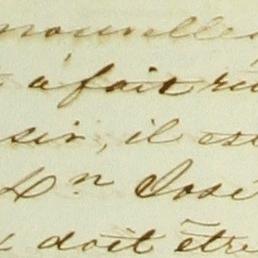 nouvelles
à fait ré
sir, il est
Dn José
doit être